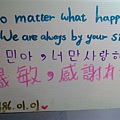 No matter what happen
We are always by your si
민아, 너만 사랑하
晟敏,感謝有
86.01.01